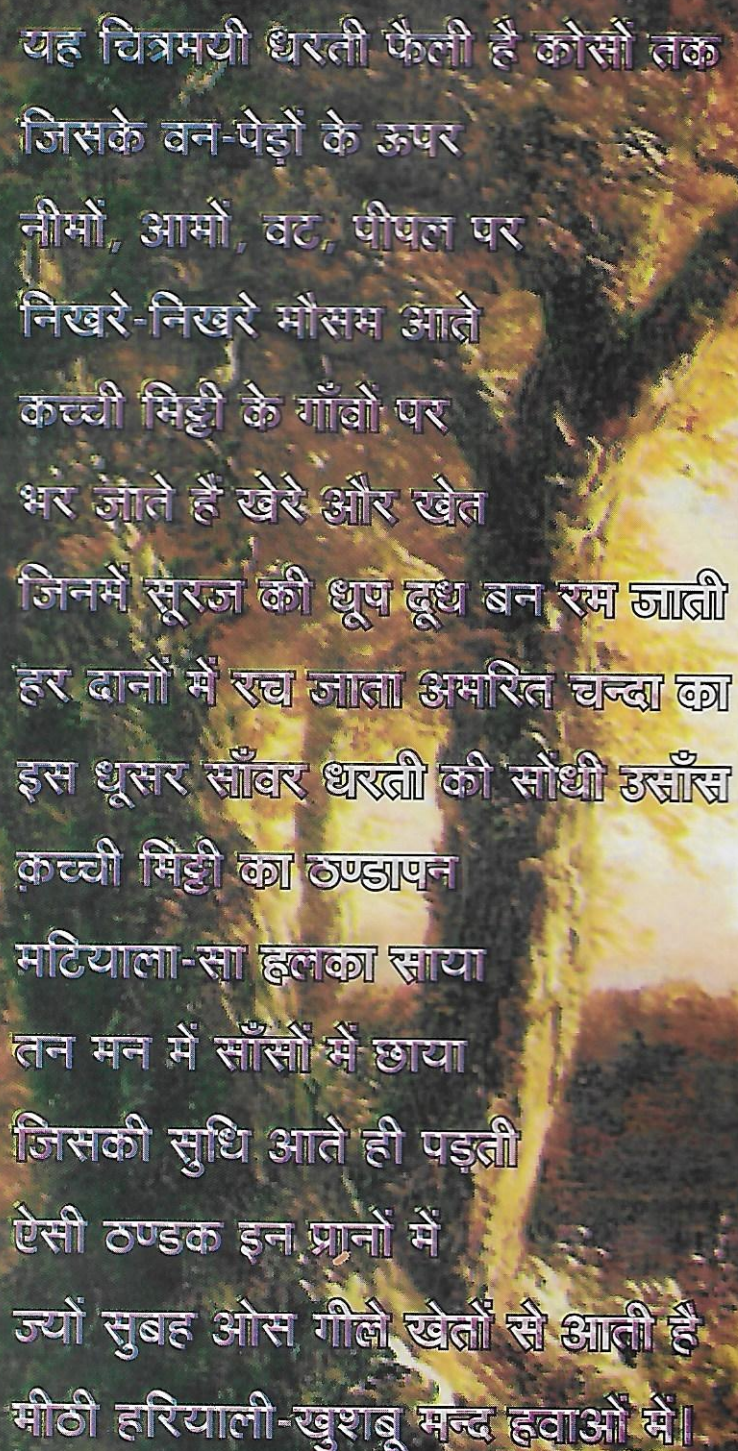 यह चित्रमयी धरती फैली है कोसों तक
जिसके वन-पेड़ों के ऊपर
नीमों, आमों, वट, पीपल पर
निखरे-निखरे मौसम आते
कच्ची मिट्टी के गाँवों पर
भर जाते हैं खेरे और खेत
जिनमें सूरज की धूप दूध बन रम जाती
हर दानों में रच जाता अमरित चन्दा का
इस धूसर साँवर धरती की सोंधी उसाँस
कच्ची मिट्टी का ठण्डापन
मटियाला-सा हलका साया
तन मन में साँसों में छाया
जिसकी सुधि आते ही पड़ती
ऐसी ठण्डक इन प्रानों में
ज्यों सुबह ओस गीले खेतों से आती है
मीठी हरियाली-खुशबू मन्द हवाओं में।